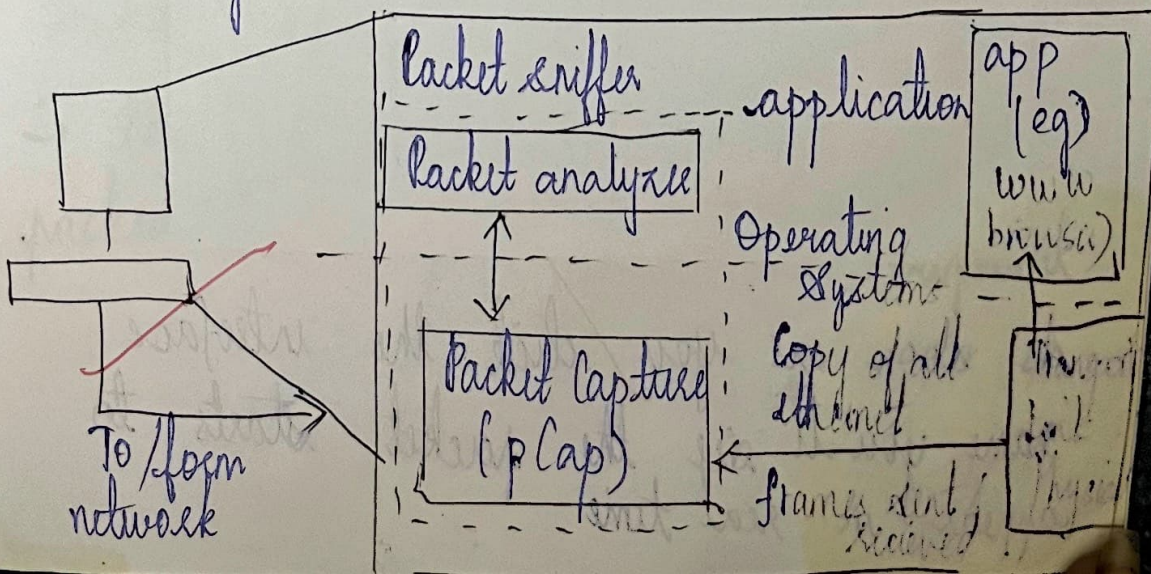 Packet sniffer
application
app
(eg)
www
browser)
Packet analyzer
Operating
System
Packet Capture
(pCap)
Copy of all
ethernet
frames sent /
recieved
To/form
network